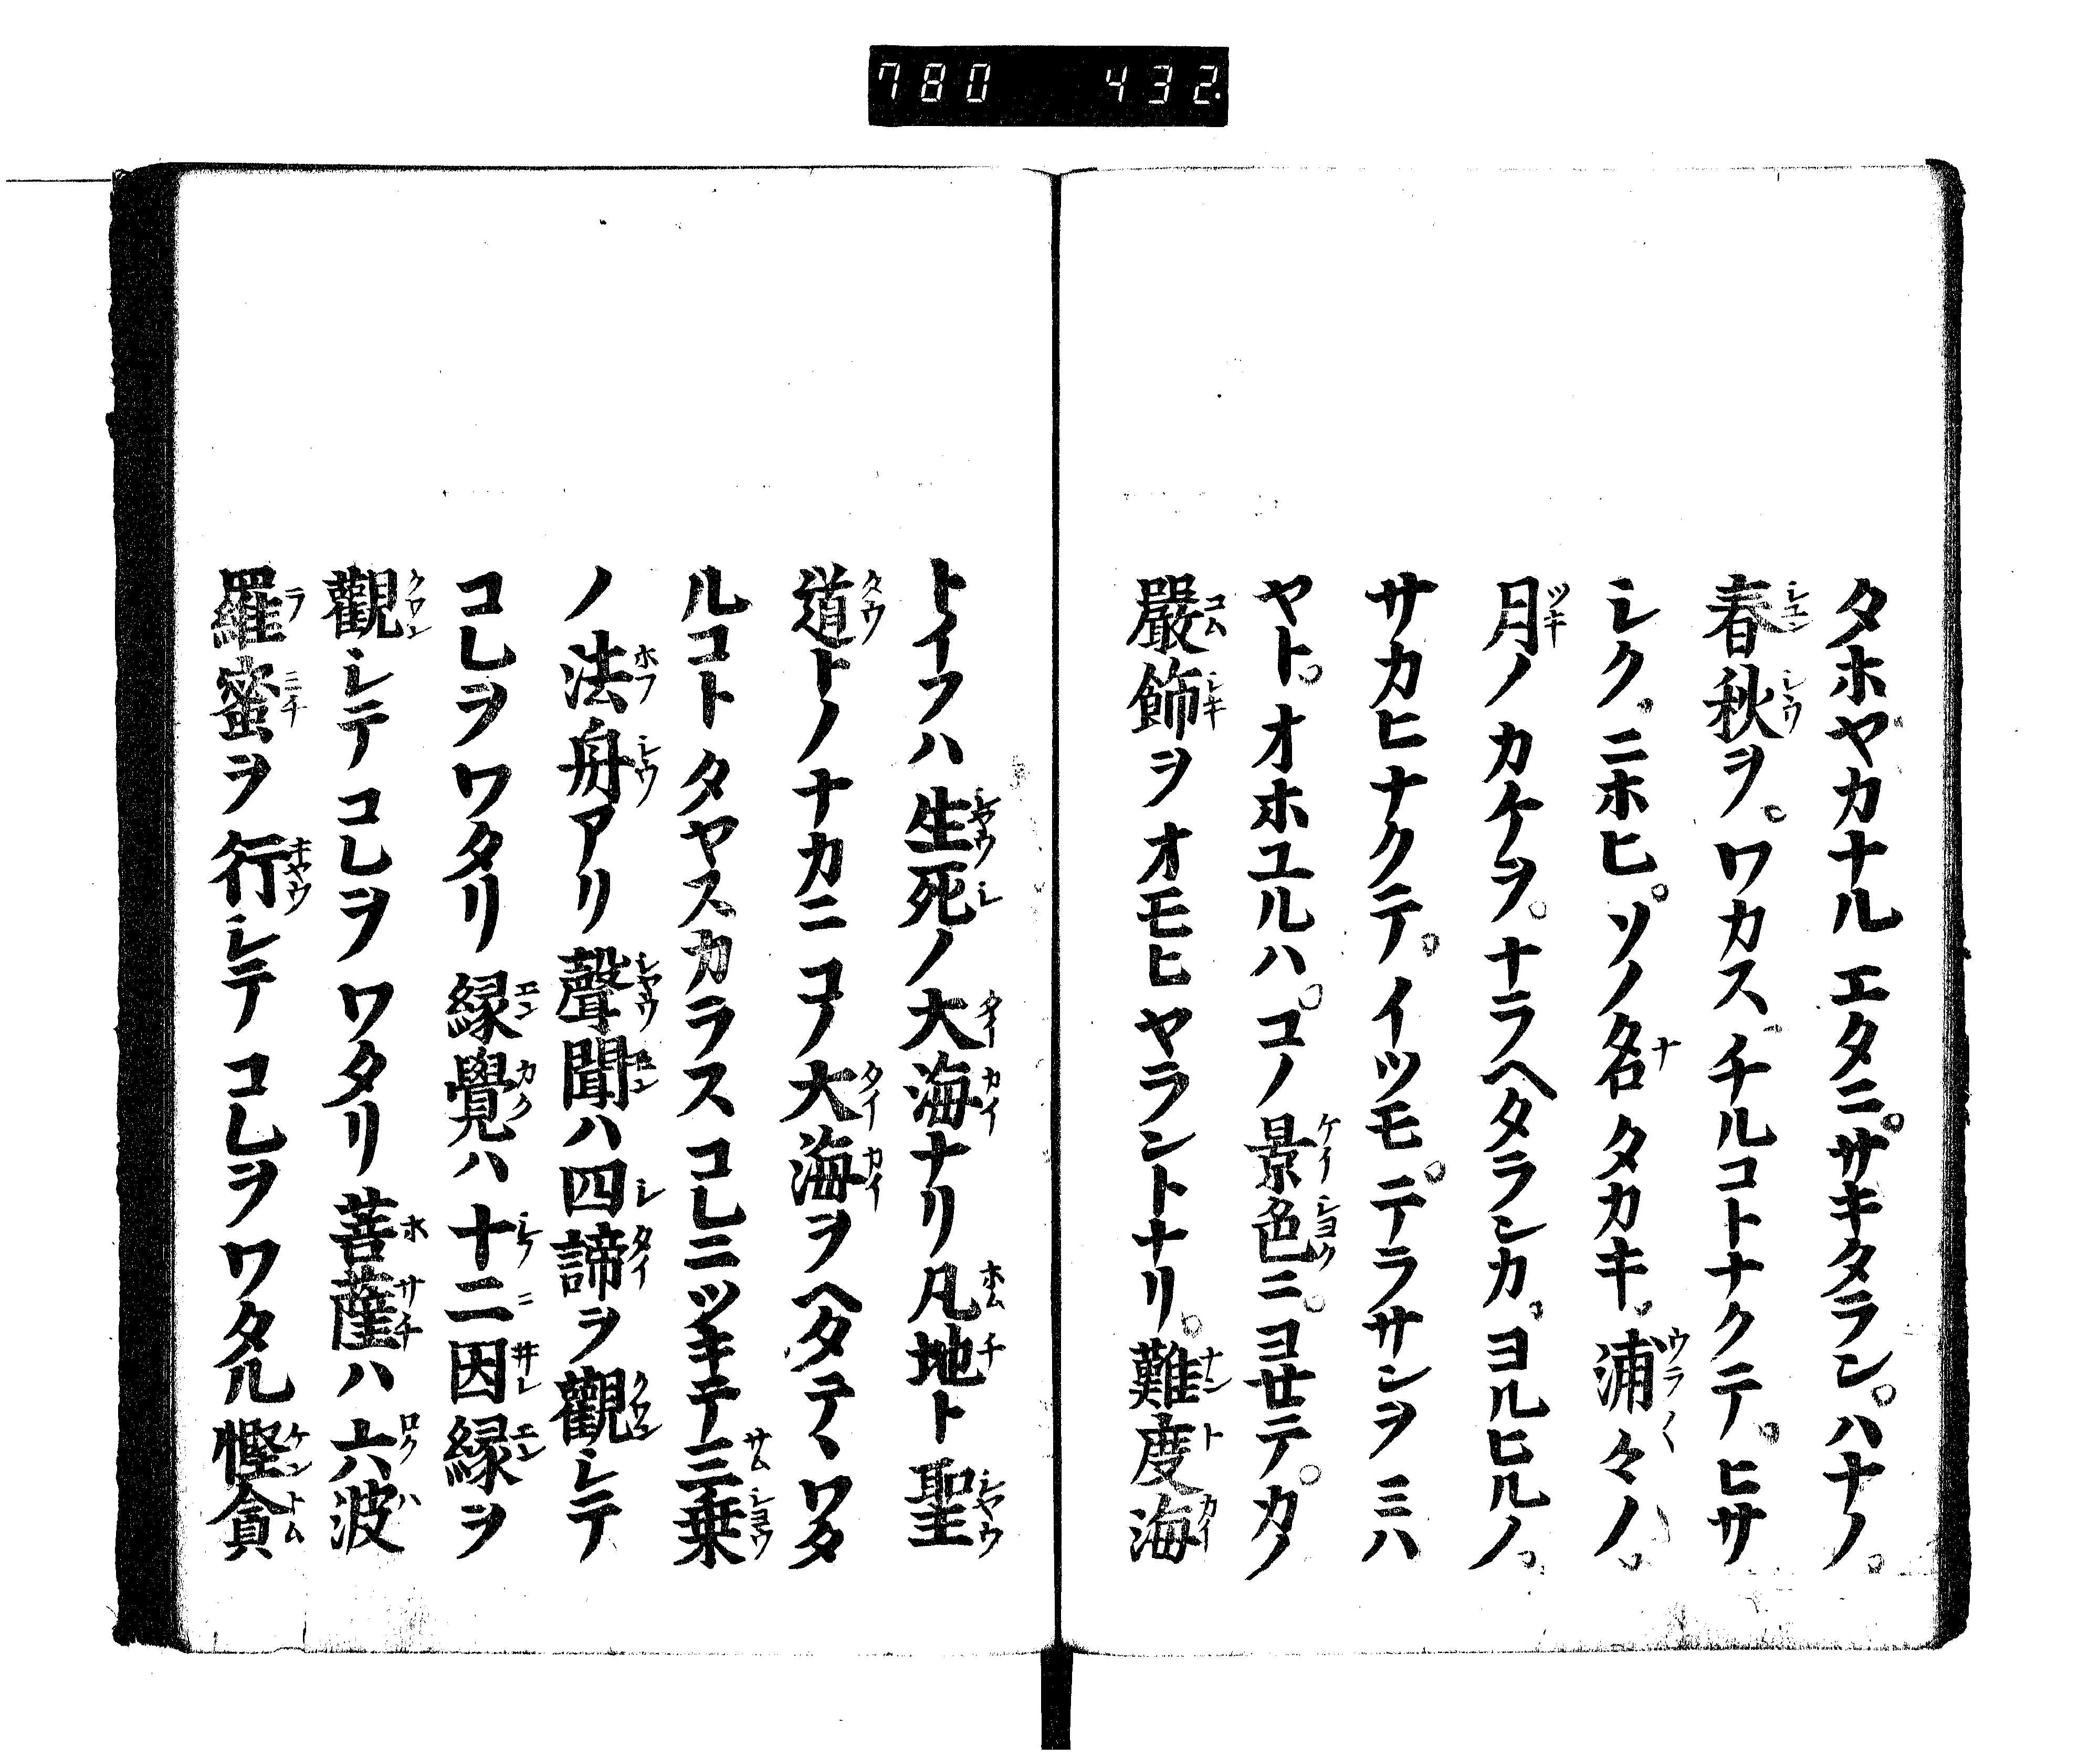 780 432.
タホヤカナルエタニ。サキタラン。ハナノ。
春秋ヲ。ワカス、チルコトナクテ。ヒサ
シク。ニホヒ。ソノ名タカキ。浦々ノ。
月ノカケヲ。ナラヘタランカ。ヨルヒルノ。
サカヒナクテ。イツモ。テラサンヲミハ
ヤト。オホユルハ。コノ景色ニ。ヨサテ。カノ
嚴飾ヲオモヒヤラントナリ。難度海
トイフハ生死ノ大海ナリ凡地ト聖
道トノナカニコノ大海ヲヘタテヽワタ
ルコトタヤスカラスコレニツキテ三乗
ノ法舟アリ聲聞ハ四諦ヲ觀シテ
コレヲワタリ縁覺ハ十二因縁ヲ
觀シテコレヲワタリ菩薩ハ六波
羅蜜ヲ行シテコレヲワタル慳貪